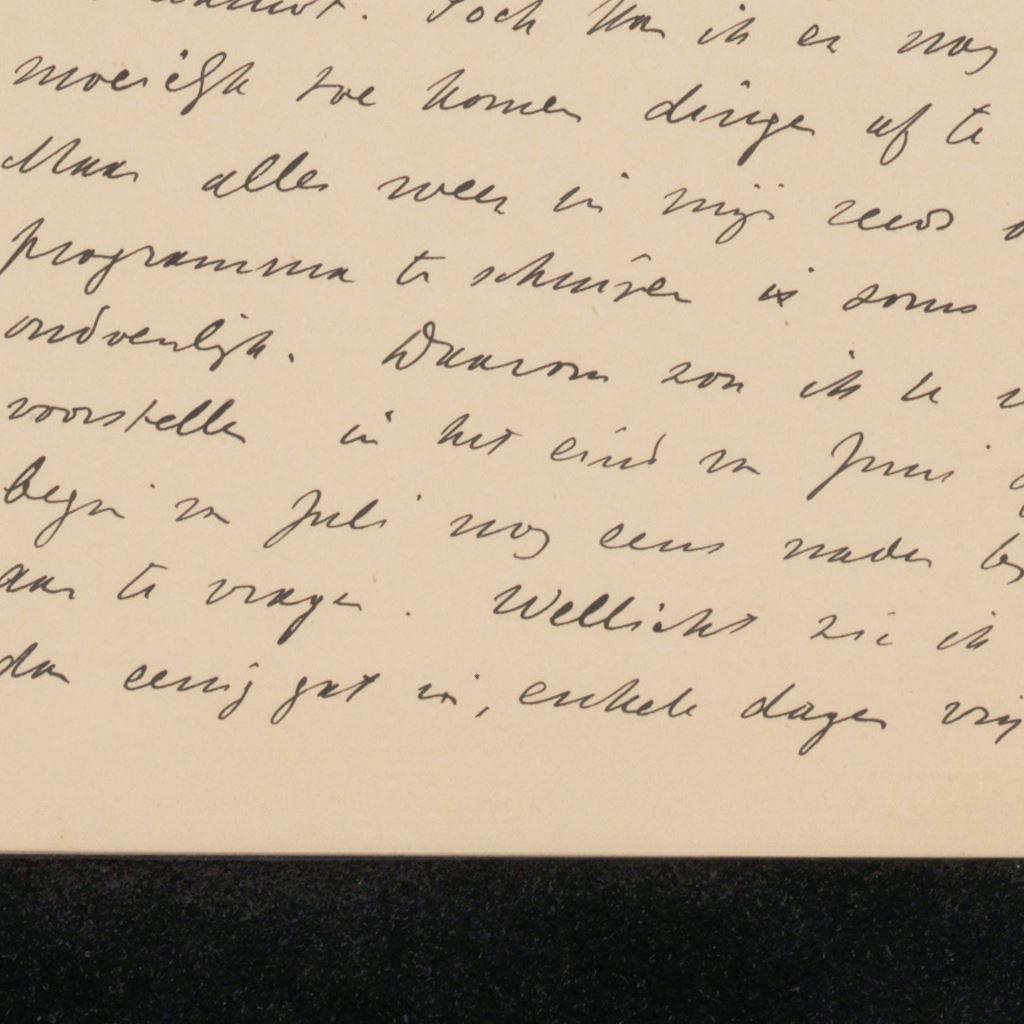 Toch kan ik er nog
moeielijk toe komen dingen af te
Maar alles weer in mijn reeds
programma te schuiven is soms
ondoenlijk. Daarom zou ik u
voorstellen in het eind van Juni
begin van Juli nog eens nader
aan te vragen. Wellicht zie ik
dan eenig gat in, enkele dagen vrij